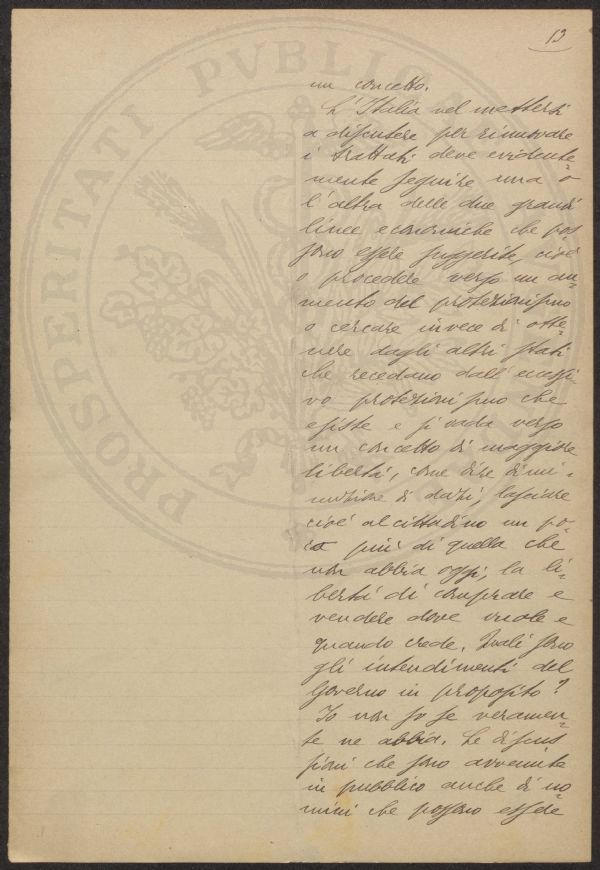 PROSPERITATI PVBLICAE
13
un concetto.
L'Italia nel mettersi
a discutere per rinnovare
i trattati deve evidente=
mente seguire una o
l'altra delle due grandi
linee economiche che pos
sono essere suggerite, cioè
o procedere verso un au=
mento del protezionismo
o cercare invece di otte=
nere dagli altri stati
che recedano dall'eccessi=
vo protezionismo che
esiste e si vada verso
un concetto di maggiore
libertà, come dire dimi=
nuzione di dazi, lasciare
cioè al cittadino un po=
co più di quella che
non abbia oggi, la li=
bertà di comprare e
vendere dove vuole e
quando crede. Quali sono
gli intendimenti del
Governo in proposito?
Io non so se veramen=
te ne abbia. Le discus
sioni che sono avvenute
in pubblico anche di uo=
mini che possono essere